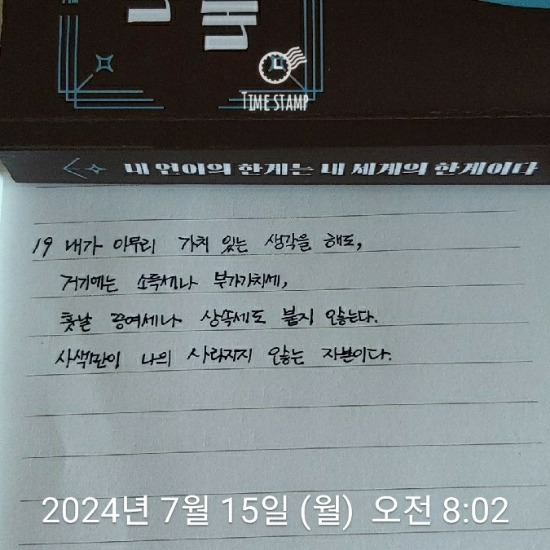 TIME STAMP
내 언어의 한계는 내 세계의 한계이다
19 내가 아무리 가치 있는 생각을 해도,
거기에는 소득세나 부가가치세,
훗날 증여세나 상속세도 붙지 않는다.
사색만이 나의 사라지지 않는 자본이다.
2024년 7월 15일 (월) 오전 8:02